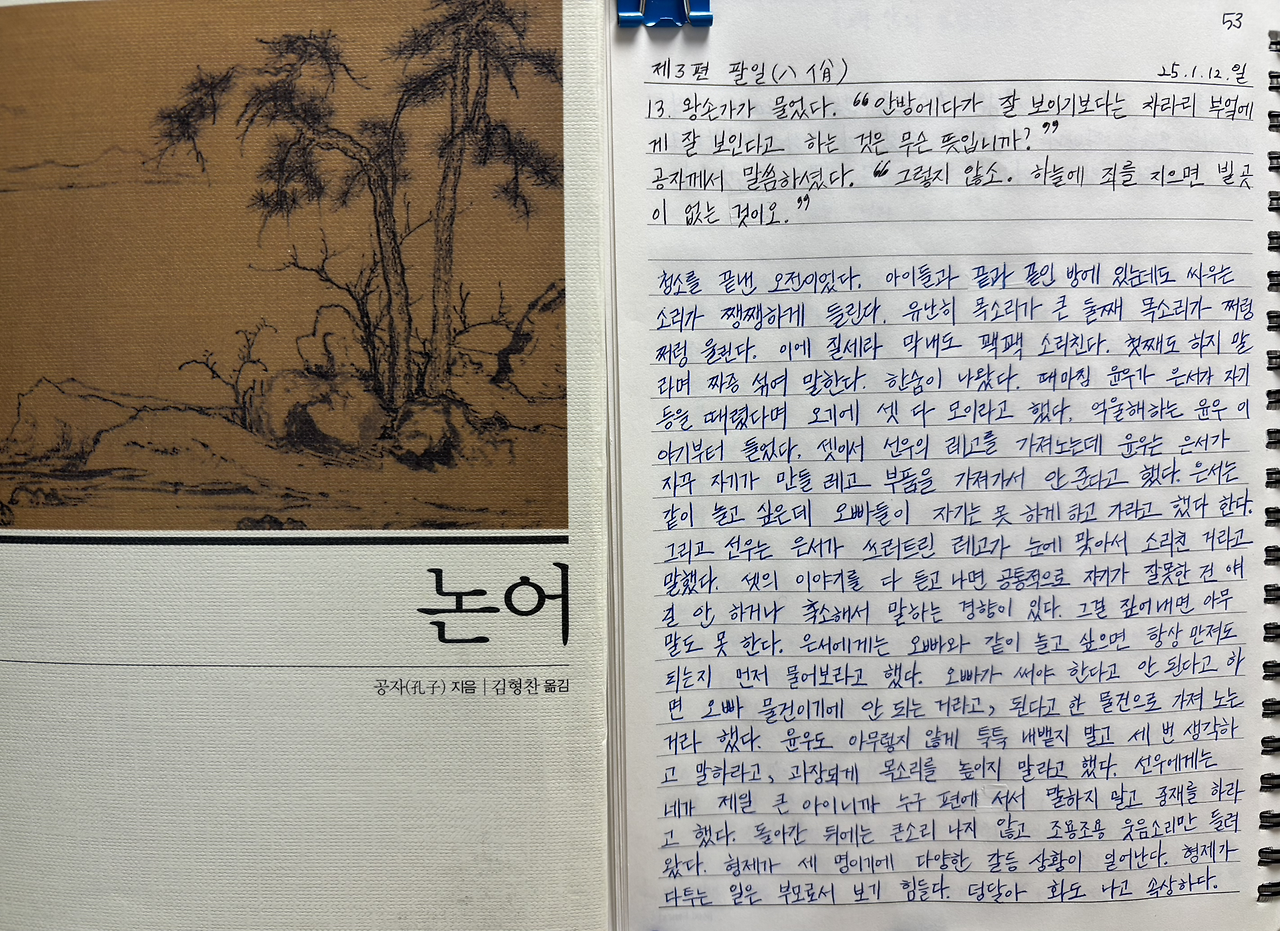 논어
공자(孔子) 지음 | 김형찬 옮김
53
제3편 팔일(八佾) 25.1.12.일
13. 왕손가가 물었다. “안방에다가 잘 보이기보다는 차라리 부엌에
게 잘 보인다고 하는 것은 무슨 뜻입니까?”
공자께서 말씀하셨다. “그렇지 않소. 하늘에 죄를 지으면 빌 곳
이 없는 것이오.”
청소를 끝낸 오전이었다. 아이들과 끝과 끝인 방에 있는데도 싸우는
소리가 쨍쨍하게 들린다. 유난히 목소리가 큰 둘째 목소리가 쩌렁
쩌렁 울린다. 이에 질세라 막내도 꽥꽥 소리친다. 첫째도 하지 말
라며 짜증 섞여 말한다. 한숨이 나왔다. 때마침 윤우가 은서가 자기
등을 때렸다며 오기에 셋 다 모이라고 했다. 억울해하는 윤우 이
야기부터 들었다. 셋이서 선우의 레고를 가져노는데 윤우는 은서가
자꾸 자기가 만들 레고 부품을 가져가서 안 준다고 했다. 은서는
같이 놀고 싶은데 오빠들이 자기는 못 하게 하고 가라고 했다 한다.
그리고 선우는 은서가 쓰러트린 레고가 눈에 맞아서 소리친 거라고
말했다. 셋의 이야기를 다 듣고 나면 공통적으로 자기가 잘못한 건 얘
길 안 하거나 축소해서 말하는 경향이 있다. 그걸 짚어내면 아무
말도 못 한다. 은서에게는 오빠와 같이 놀고 싶으면 항상 만져도
되는지 먼저 물어보라고 했다. 오빠가 써야 한다고 안 된다고 하
면 오빠 물건이기에 안 되는 거라고, 된다고 한 물건으로 가져 노는
거라 했다. 윤우도 아무렇지 않게 툭툭 내뱉지 말고 세 번 생각하
고 말하라고, 과장되게 목소리를 높이지 말라고 했다. 선우에게는
네가 제일 큰 아이니까 누구 편에 서서 말하지 말고 중재를 하라
고 했다. 돌아간 뒤에는 큰소리 나지 않고 조용조용 웃음소리만 들려
왔다. 형제가 세 명이기에 다양한 갈등 상황이 일어난다. 형제가
다투는 일은 부모로서 보기 힘들다. 덩달아 화도 나고 속상하다.